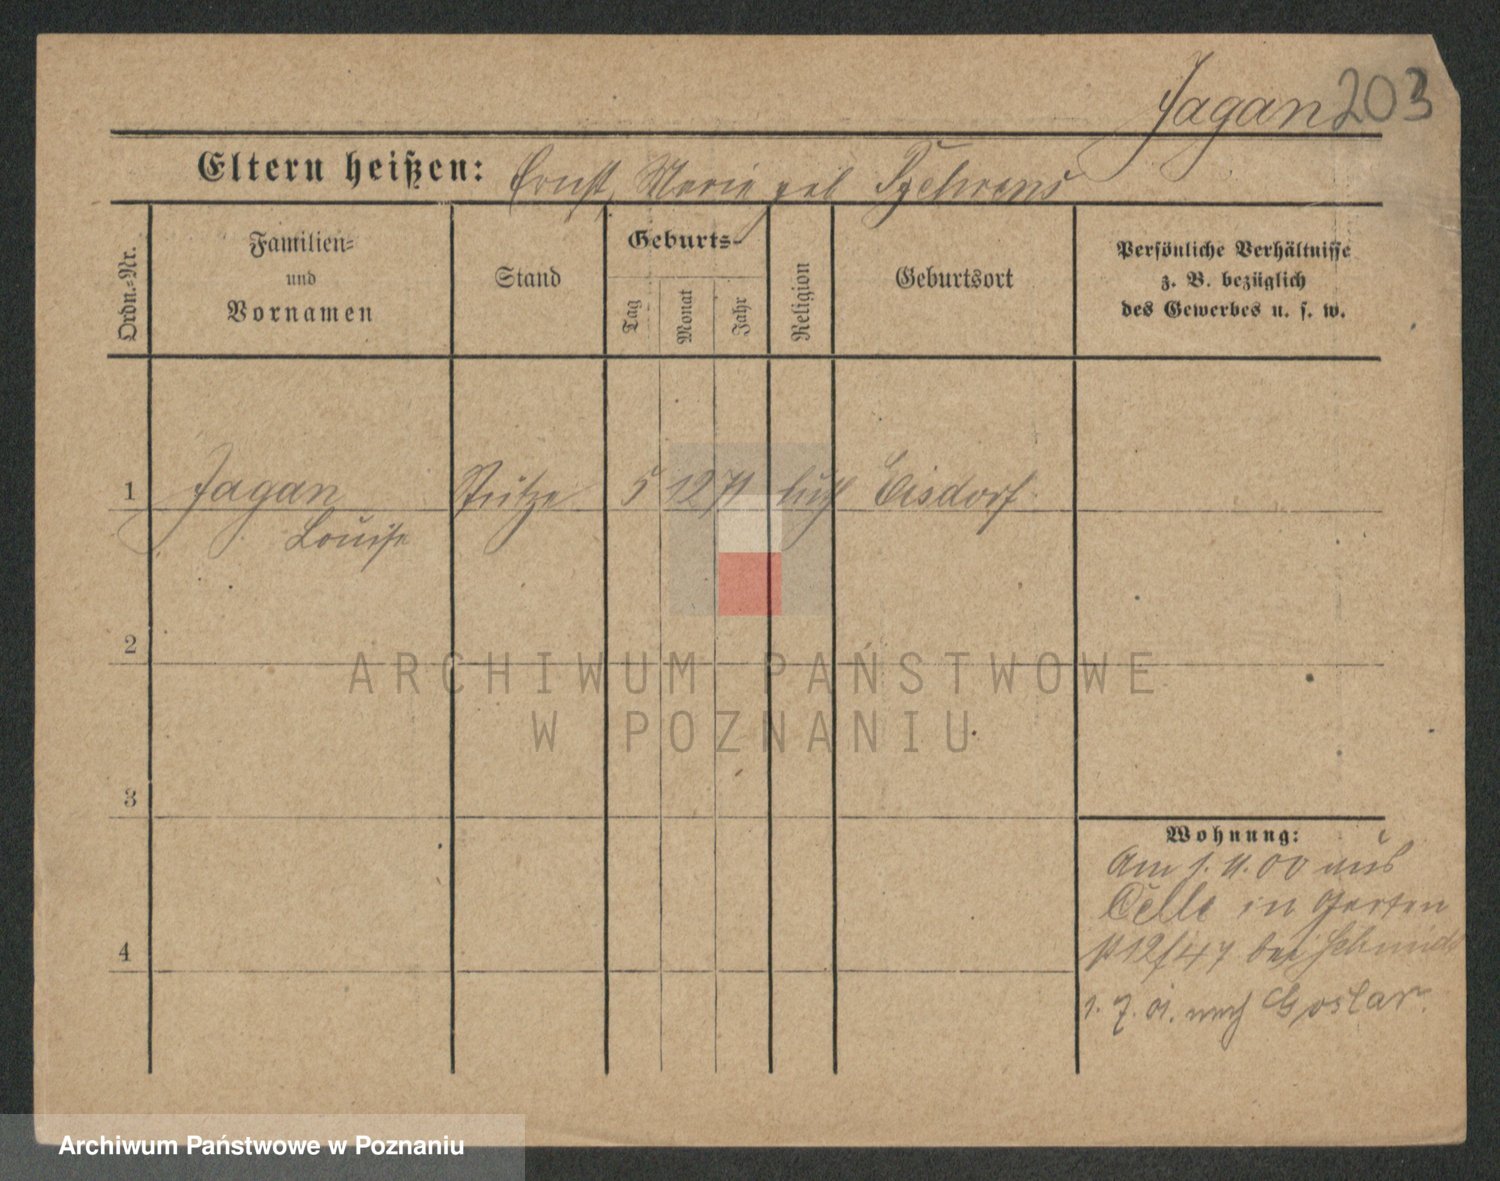 Jagan 203
Eltern heißen: Ernst, Marie geb
Ordn.-Nr.
Familien-
und
Vornamen
Stand
Geburts-
Tag
Monat
Jahr
Religion
Geburtsort
Persönliche Verhältnisse
z. B. bezüglich
des Gewerbes u. s. w.
1 Jagan Stütze 5 12 71 luth Eisdorf
Louise
2
ARCHIWUM PAŃSTWOWE
W POZNANIU
3
Wohnung:
Am 1. 11. 00 aus
Celle in Garten
12/47 bei Schmidt
4
1. 7. 01. nach Goslar.
Archiwum Państwowe w Poznaniu